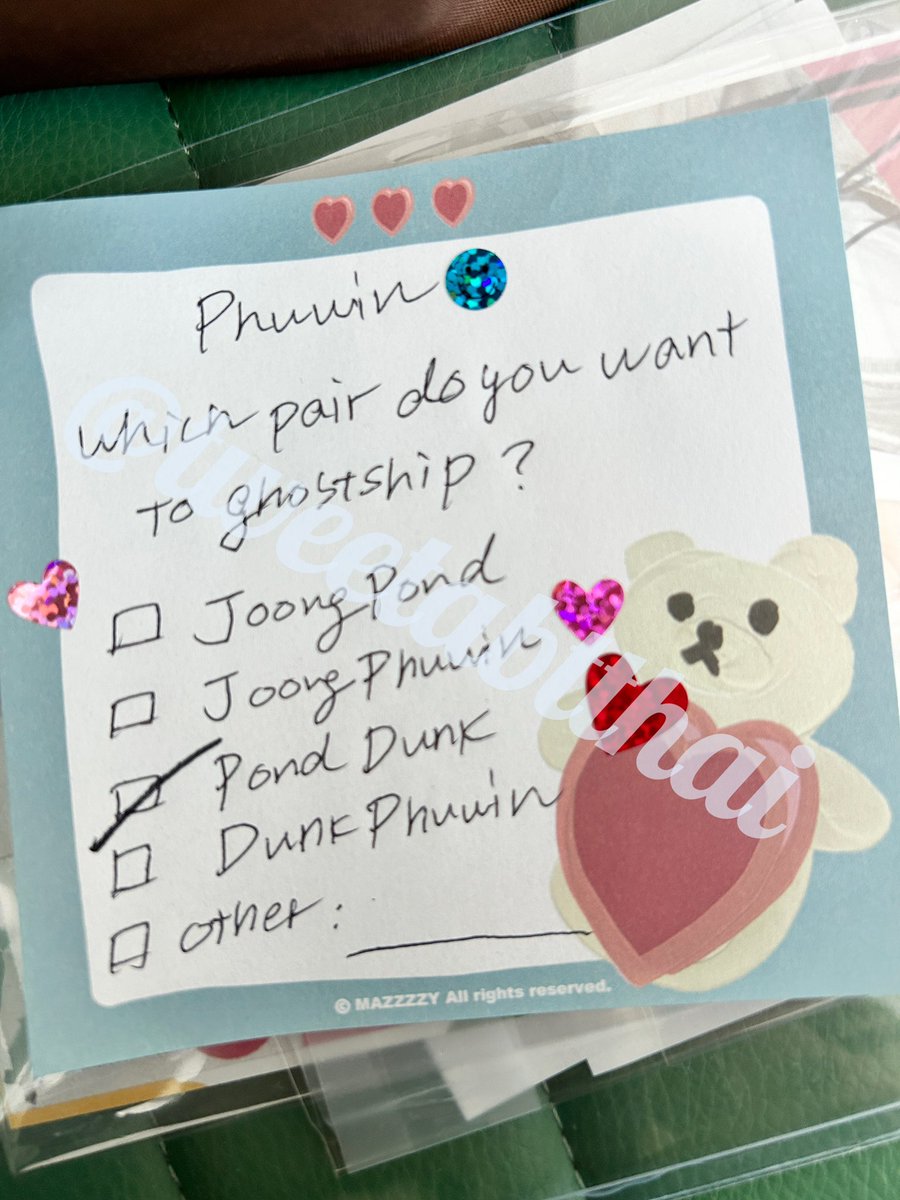 Phuwin
which pair do you want
to ghostship ?
JoongPond
JoongPhuwin
Pond Dunk
DunkPhuwin
other :
© MAZZZZY All rights reserved.
@tweetabitthai